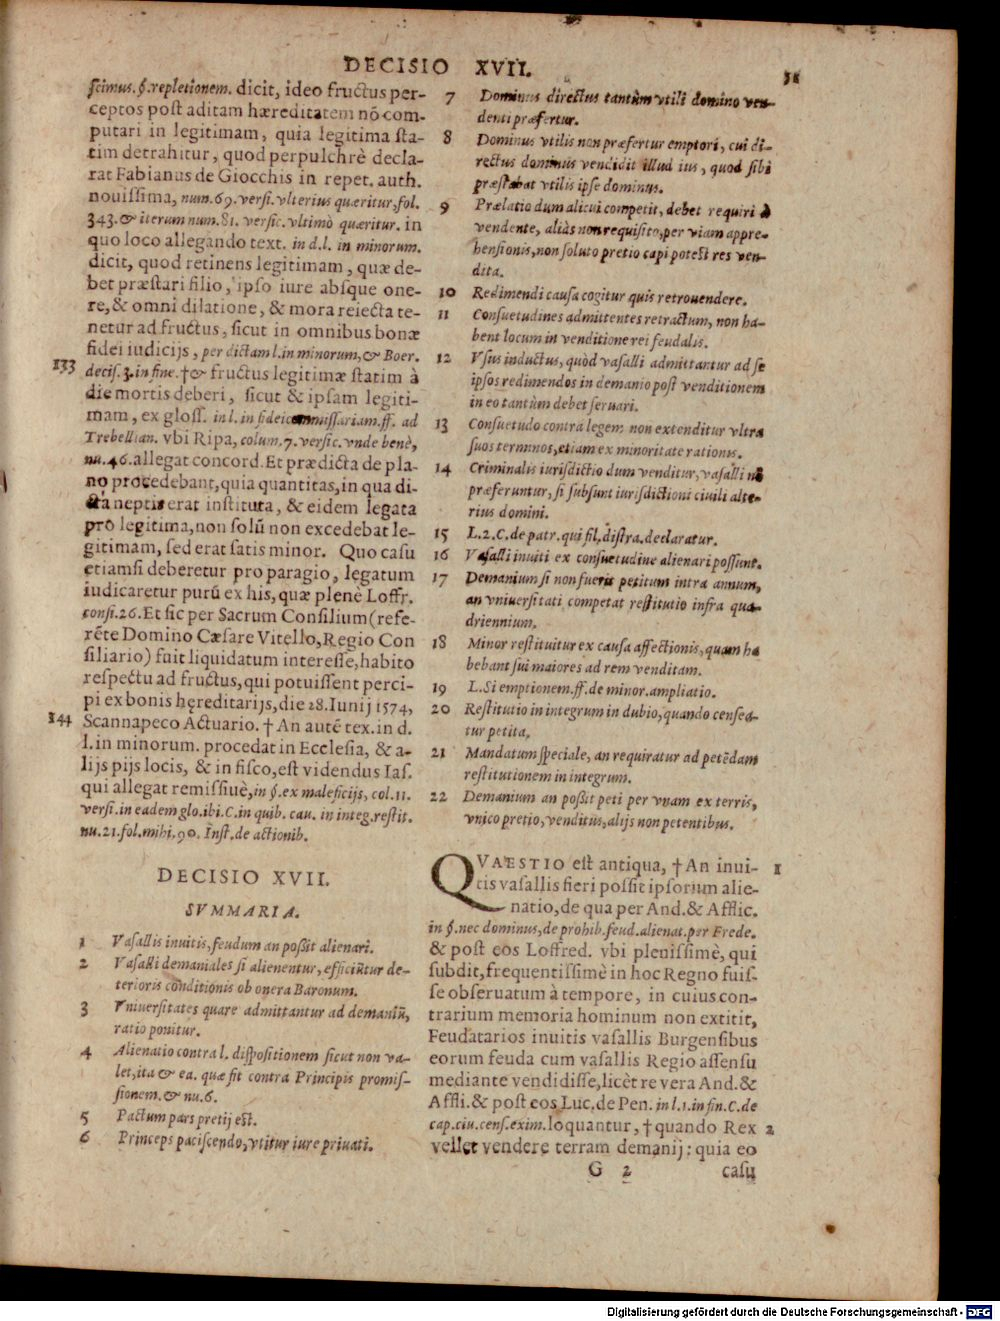 DECISIO XVII.
scimus. §. repletionem. dicit, ideo fructus per-
ceptos post aditam hæreditatem nō com-
putari in legitimam, quia legitima sta-
tim detrahitur, quod perpulchrè decla-
rat Fabianus de Giocchis in repet. auth.
nouissima, num. 69. versi. vlterius quæritur, fol.
343. & iterum num. 81. versic. vltimò quæritur. in
quo loco allegando text. in d. l. in minorum.
dicit, quod retinens legitimam, quæ de-
bet præstari filio, ipso iure absque one-
re, & omni dilatione, & mora reiecta te-
netur ad fructus, sicut in omnibus bonæ
fidei iudicijs, per dictam l. in minorum, & Boer.
133 decis. 3. in fine. † & fructus legitimæ statim à
die mortis deberi, sicut & ipsam legiti-
mam, ex gloss. in l. in fideicommissariam. ff. ad
Trebellian. vbi Ripa, colum. 7. versic. vnde benè,
nu. 46. allegat concord. Et prædicta de pla-
no procedebant, quia quantitas, in qua di-
cta neptis erat instituta, & eidem legata
pro legitima, non solū non excedebat le-
gitimam, sed erat satis minor. Quo casu
etiamsi deberetur pro paragio, legatum
iudicaretur purū ex his, quæ plenè Loffr.
consi. 26. Et sic per Sacrum Consilium (refe-
rēte Domino Cæsare Vitello, Regio Con
siliario) fuit liquidatum interesse, habito
respectu ad fructus, qui potuissent perci-
pi ex bonis hęreditarijs, die 28. Iunij 1574,
144 Scannapeco Actuario. † An autē tex. in d.
l. in minorum. procedat in Ecclesia, & a-
lijs pijs locis, & in fisco, est videndus Ias.
qui allegat remissiuè, in §. ex maleficijs, col. 11.
versi. in eadem glo. ibi. C. in quib. cau. in integ. restit.
nu. 21. fol. mihi. 90. Inst. de actionib.
DECISIO XVII.
SVMMARIA.
1 Vasallis inuitis, feudum an possit alienari.
2 Vasalli demaniales si alienentur, efficiūtur de-
terioris conditionis ob onera Baronum.
3 Vniuersitates quare admittantur ad demaniū,
ratio ponitur.
4 Alienatio contra l. dispositionem sicut non va-
let, ita & ea. quæ fit contra Principis promis-
sionem. & nu. 6.
5 Pactum pars pretij est.
6 Princeps paciscendo, vtitur iure priuati.
7 Dominus directus tantùm vtili domino ven-
denti præfertur.
8 Dominus vtilis non præfertur emptori, cui di-
rectus dominus vendidit illud ius, quod sibi
præstabat vtilis ipse dominus.
9 Prælatio dum alicui competit, debet requiri à
vendente, aliàs non requisito, per viam appre-
hensionis, non soluto pretio capi potest res ven-
dita.
10 Redimendi causa cogitur quis retrouendere.
11 Consuetudines admittentes retractum, non ha-
bent locum in venditione rei feudalis.
12 Vsus inductus, quòd vasalli admittantur ad se
ipsos redimendos in demanio post venditionem
in eo tantùm debet seruari.
13 Consuetudo contra legem non extenditur vltra
suos terminos, etiam ex minoritate rationis.
14 Criminalis iurisdictio dum venditur, vasalli nō
præferuntur, si subsunt iurisdictioni ciuili alte-
rius domini.
15 L. 2. C. de patr. qui fil. distra. declaratur.
16 Vasalli inuiti ex consuetudine alienari possunt.
17 Demanium si non fuerit petitum intra annum,
an vniuersitati competat restitutio infra qua-
driennium.
18 Minor restituitur ex causa affectionis, quam ha
bebant sui maiores ad rem venditam.
19 L. Si emptionem. ff. de minor. ampliatio.
20 Restitutio in integrum in dubio, quando censea-
tur petita.
21 Mandatum speciale, an requiratur ad petēdam
restitutionem in integrum.
22 Demanium an possit peti per vnam ex terris,
vnico pretio, venditus, alijs non petentibus.
QVAESTIO est antiqua, † An inui- 1
tis vasallis fieri possit ipsorum alie-
natio, de qua per And. & Afflic.
in §. nec dominus, de prohib. feud. alienat. per Frede.
& post eos Loffred. vbi plenissimè, qui
subdit, frequentissimè in hoc Regno fuis-
se obseruatum à tempore, in cuius con-
trarium memoria hominum non extitit,
Feudatarios inuitis vasallis Burgensibus
eorum feuda cum vasallis Regio assensu
mediante vendidisse, licèt re vera And. &
Affli. & post eos Luc. de Pen. in l. 1. in fin. C. de
cap. ciu. cens. exim. loquantur, † quando Rex 2
vellet vendere terram demanij: quia eo
G 2 casu
Digitalisierung gefördert durch die Deutsche Forschungsgemeinschaft - DFG